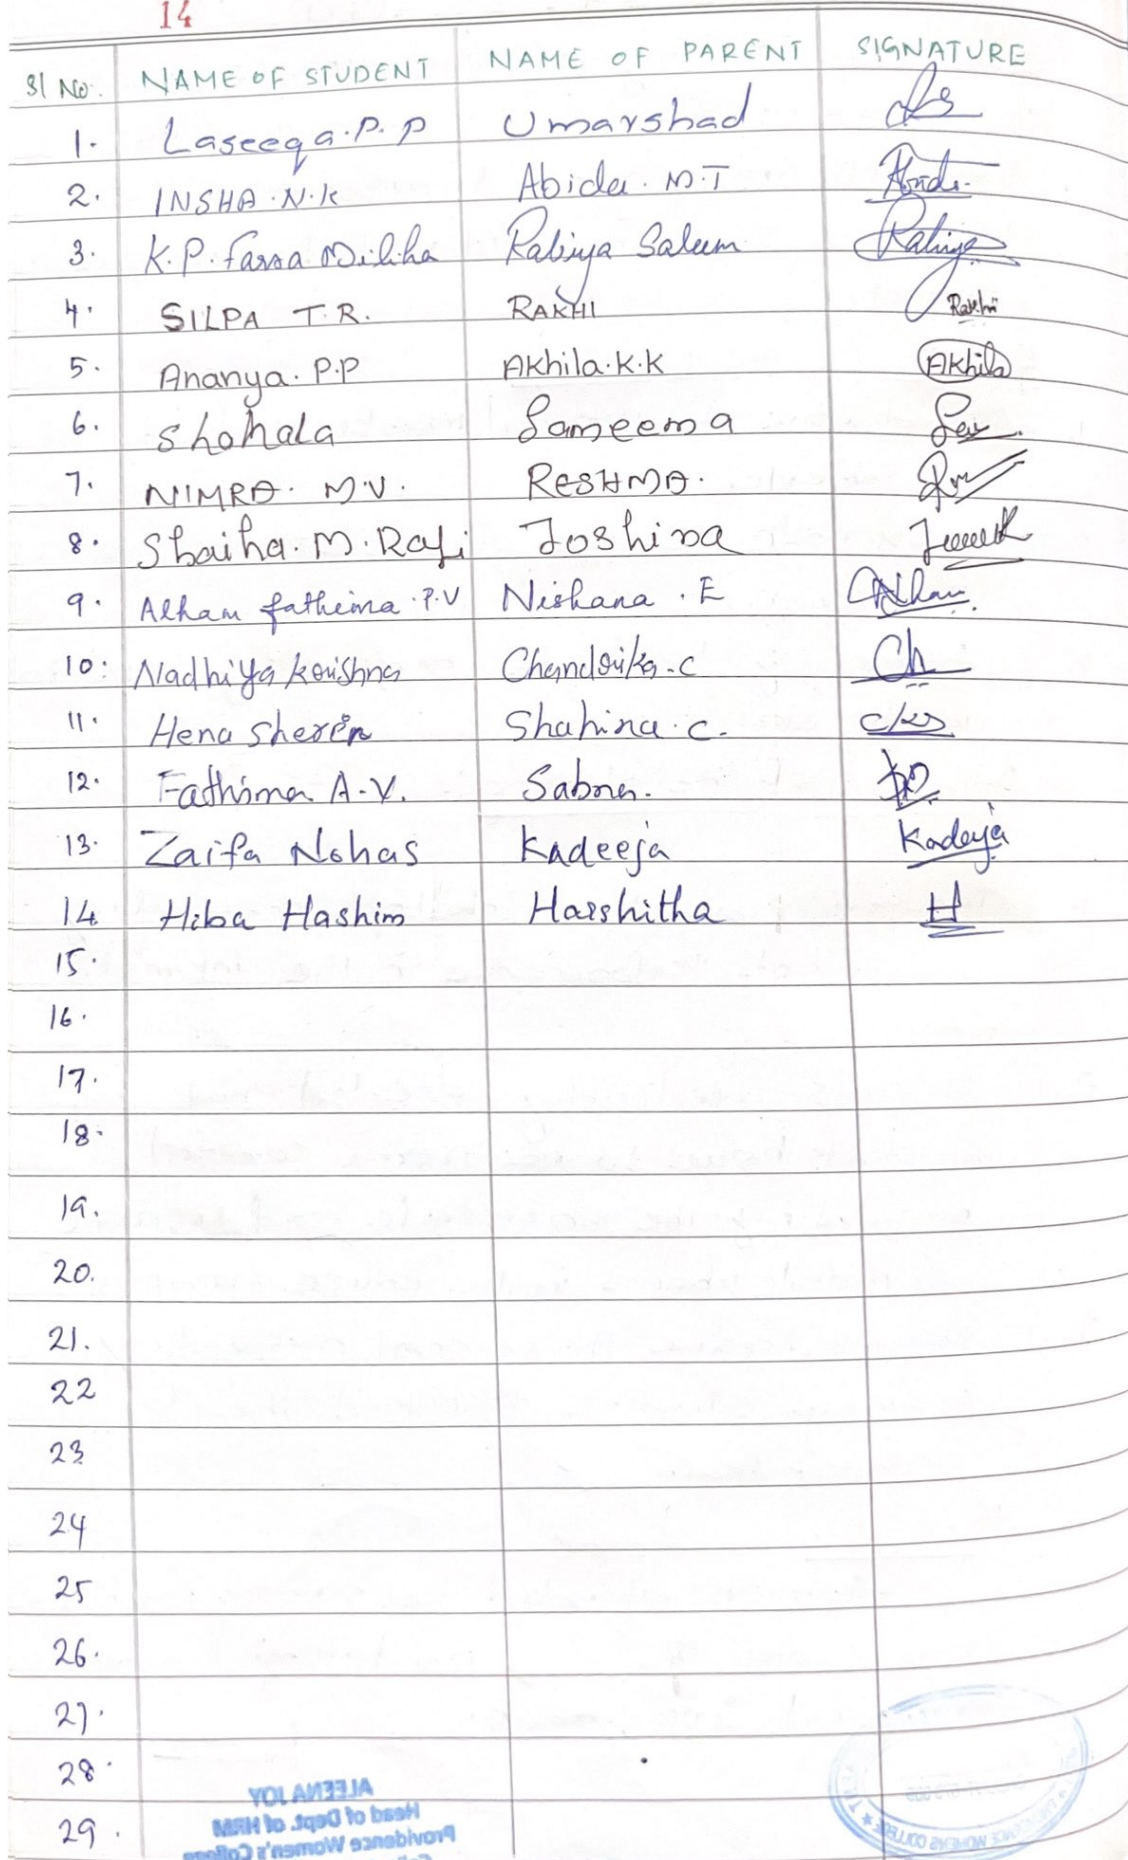 14
Sl No. NAME OF STUDENT NAME OF PARENT SIGNATURE
1. Laseeqa.P.P Umarshad
2. INSHA.N.K Abida.M.T
3. K.P. Farsa Miliha Rabiya Saleem Rabiya
4. SILPA T.R. RAKHI Rakhi
5. Ananya.P.P Akhila.K.K Akhila
6. Shahala Sameema
7. NIMRA.M.V. RESHMA.
8. Shaiha.M.Rafi Joshina
9. Alham fathima.P.V Nishana.E
10. Nadhiya krishna Chandrika.C Ch
11. Hena Sherin Shahina.C.
12. Fathima A.V. Sabna.
13. Zaifa Nahas Kadeeja Kadeeja
14 Hiba Hashim Harshitha H
15.
16.
17.
18.
19.
20.
21.
22
23
24
25
26.
27.
28.
29.
ALEENA JOY
Head of Dept. of HRM
Providence Women's College